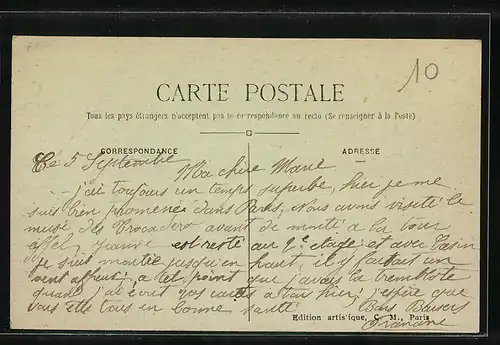 10
CARTE POSTALE
Tous les pays étrangers n'acceptent pas la correspondance au recto (Se renseigner à la Poste)
CORRESPONDANCE
ADRESSE
Ce 5 Septembre
Ma chère
j'ai toujours un temps superbe, hier je me
suis bien promené dans Paris, Nous avons visité le
musé des Trocadero avant de monté a la tour
est resté au 2e étage et avec
je suis montée jusqu'en haut, il y faisait un
vent affreux, a tel point que j'avais la tremblote
quand j'ai écrit vos cartes a hier j'espère que
vous êtes tous en bonne santé. Bons Baisers
Edition artis'ique, C. M., Paris